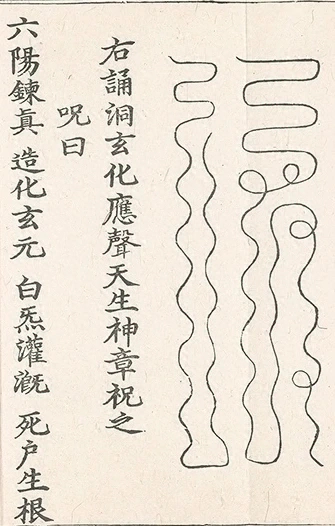 右誦洞玄化應聲天生神章祝之
呪曰
六陽鍊真 造化玄元 白炁灌溉 死户生根